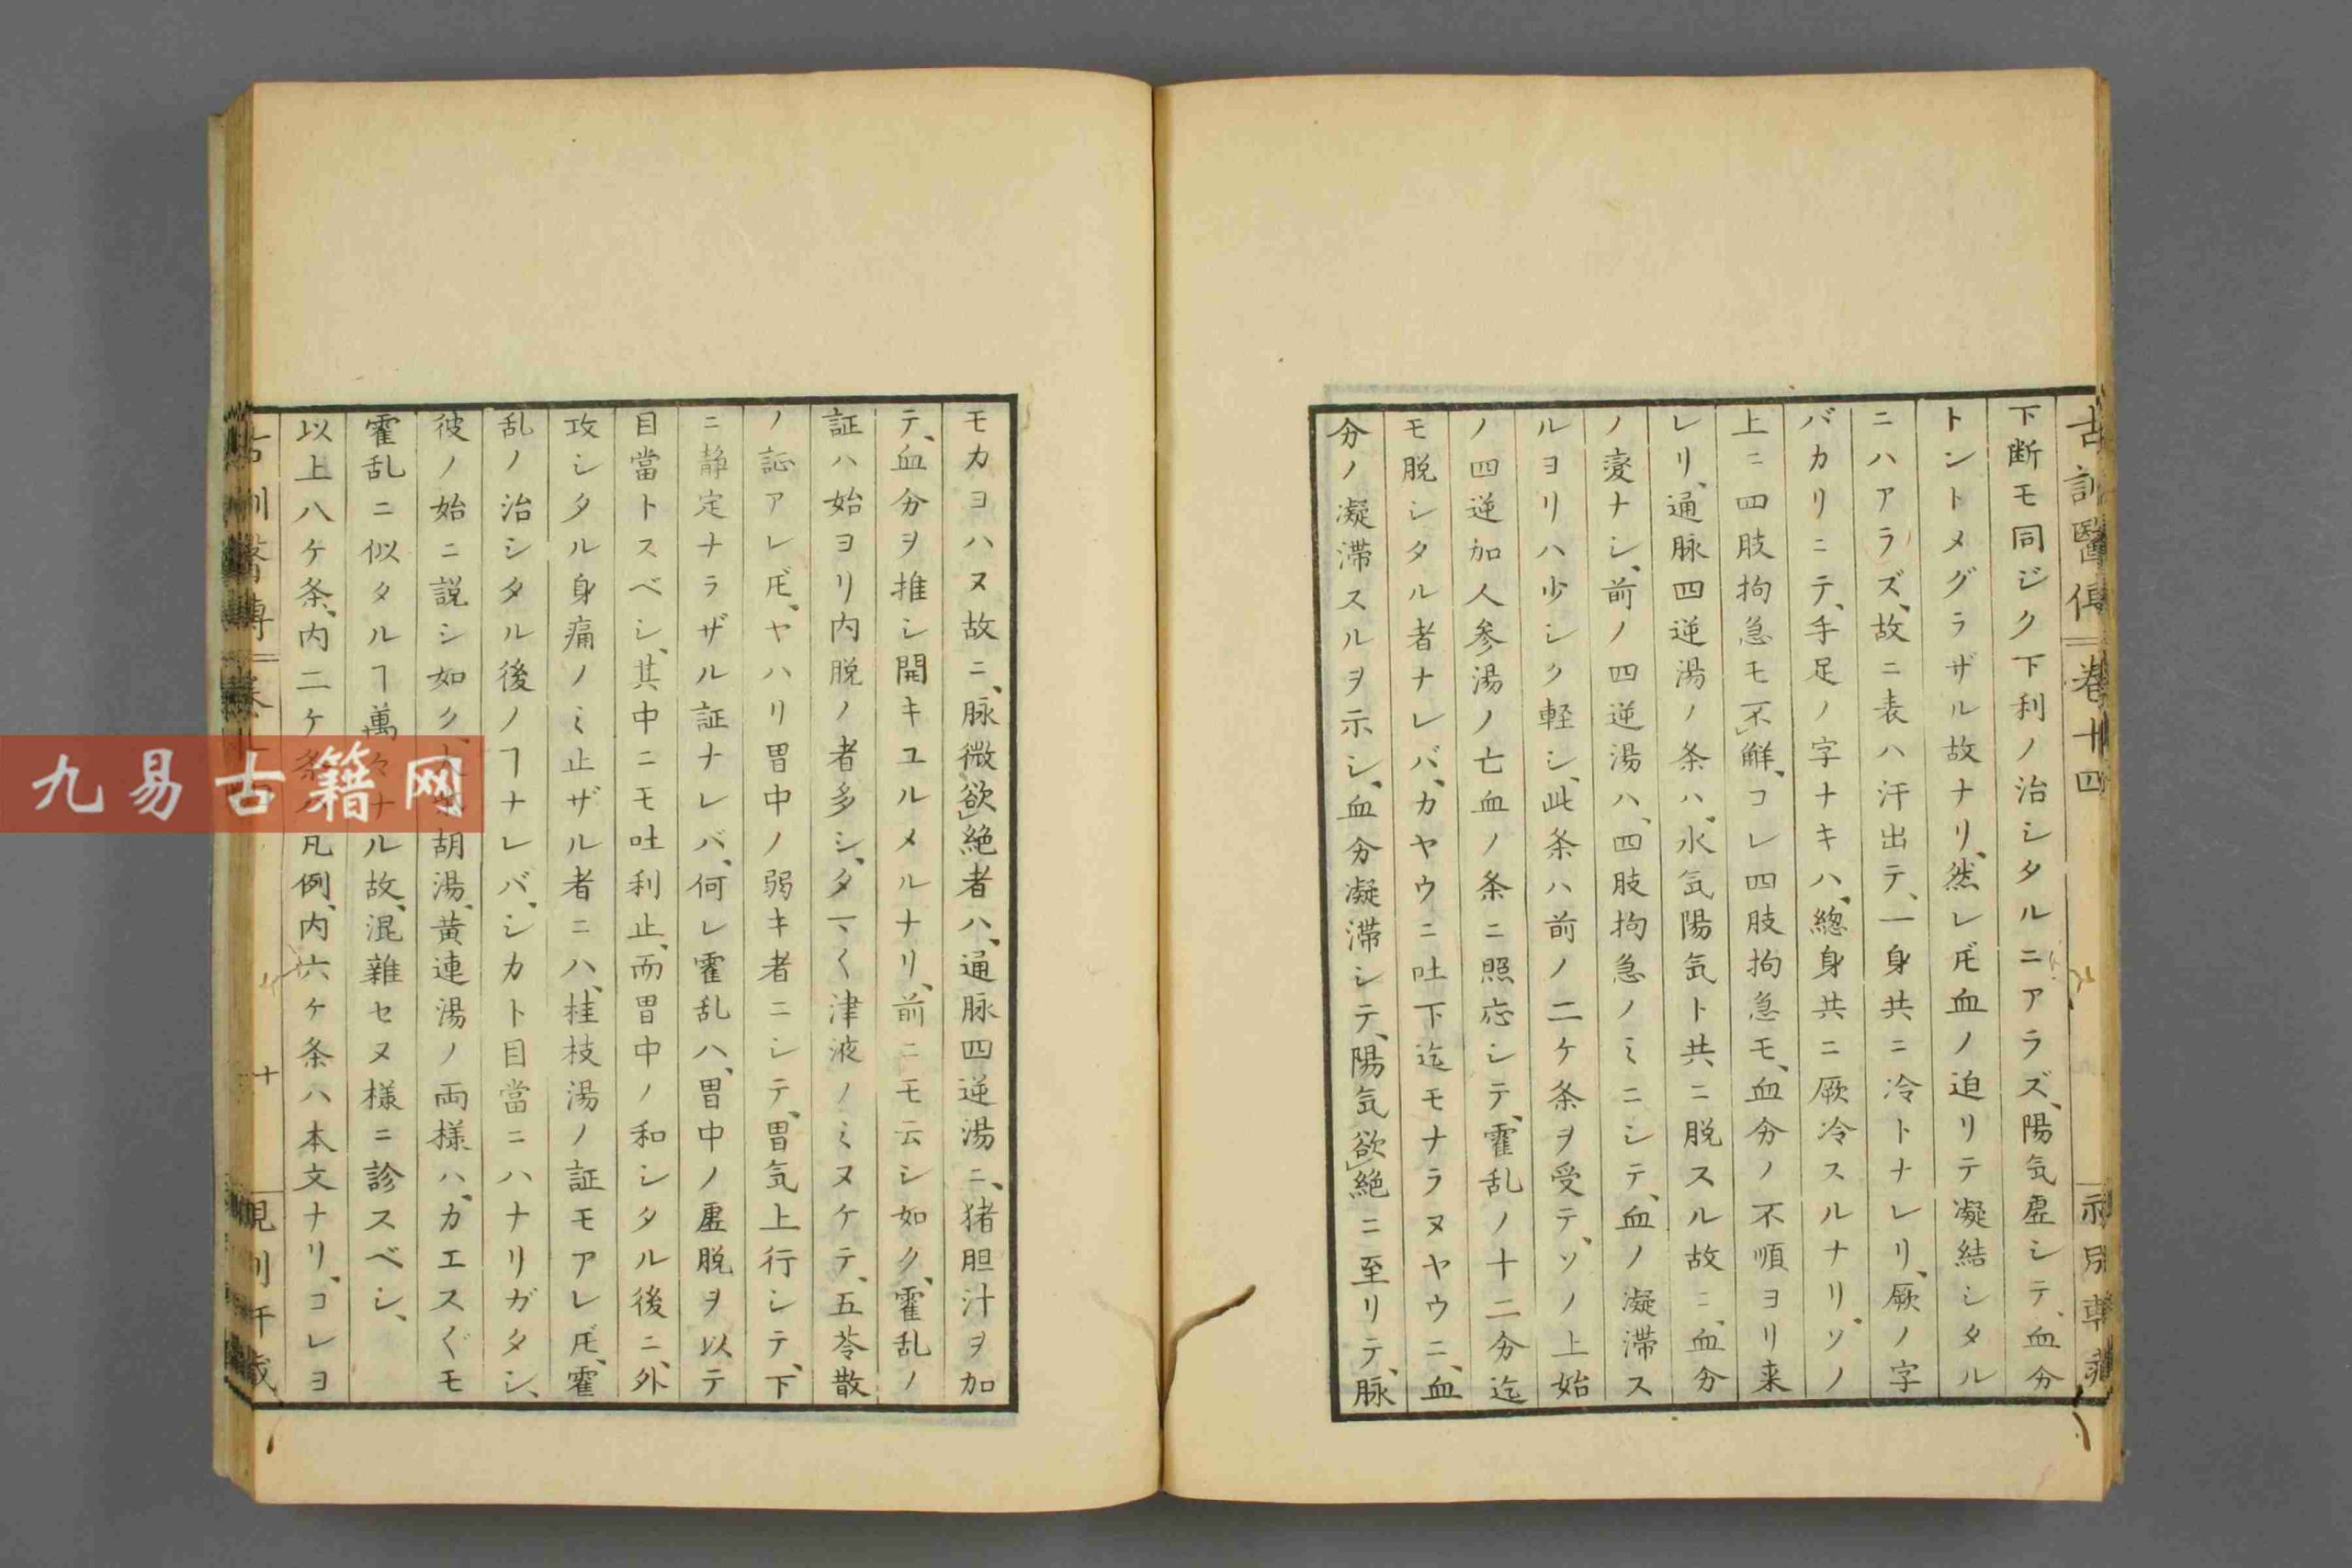 古訓醫傳 卷十四
下断モ同ジク下利ノ治シタルニアラズ、陽気虚シテ、血分
トントメグラザル故ナリ、然レ𪜈血ノ迫リテ凝結シタル
ニハアラズ、故ニ表ハ汗出テ、一身共ニ冷トナレリ、厥ノ字
バカリニテ、手足ノ字ナキハ、緫身共ニ厥冷スルナリ、ソノ
上ニ四肢拘急モ不鮮、コレ四肢拘急モ、血分ノ不順ヨリ来
レリ、通脉四逆湯ノ条ハ、水気陽気ト共ニ脱スル故ニ、血分
ノ変ナシ、前ノ四逆湯ハ、四肢拘急ノミニシテ、血ノ凝滞ス
ルヨリハ少シク軽シ、此条ハ前ノ二ケ条ヲ受テ、ソノ上始
ノ四逆加人参湯ノ亡血ノ条ニ照応シテ、霍乱ノ十二分迄
モ脱シタル者ナレバ、カヤウニ吐下迄モナラヌヤウニ、血
分ノ凝滞スルヲ示シ、血分凝滞シテ、陽気欲絶ニ至リテ、脉
モカヨハヌ故ニ、脉微欲絶者ハ、通脉四逆湯ニ、猪胆汁ヲ加
テ、血分ヲ推シ開キユルメルナリ、前ニモ云シ如ク、霍乱ノ
証ハ始ヨリ内脱ノ者多シ、タヾ〱津液ノミヌケテ、五苓散
ノ証アレ𪜈、ヤハリ胃中ノ弱キ者ニシテ、胃気上行シテ、下
ニ静定ナラザル証ナレバ、何レ霍乱ハ、胃中ノ虚脱ヲ以テ
目當トスベシ、其中ニモ吐利止、而胃中ノ和シタル後ニ、外
攻シタル身痛ノミ止ザル者ニハ、桂枝湯ノ証モアレ𪜈、霍
乱ノ治シタル後ノヿナレバ、シカト目當ニハナリガタシ、
彼ノ始ニ説シ如ク、胡湯、黄連湯ノ両様ハ、カエスグモ
霍乱ニ似タルヿ萬々ナル故、混雜セヌ様ニ診スベシ、
以上八ケ条、内二ケ条ハ凡例、内六ケ条ハ本文ナリ、コレヨ
十
九易古籍网